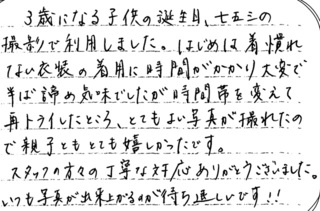 3歳になる子供の誕生日、七五三の
撮影で利用しました。はじめは着慣れ
ない衣装の着用に時間がかかり大変で
半ば諦め気味でしたが時間帯を変えて
再トライしたところ、とてもよい写真が撮れたの
で親子ともとても嬉しかったです。
スタッフの方々の丁寧な対応ありがとうございました。
いつも写真が出来上がるのが待ち遠しいです!!